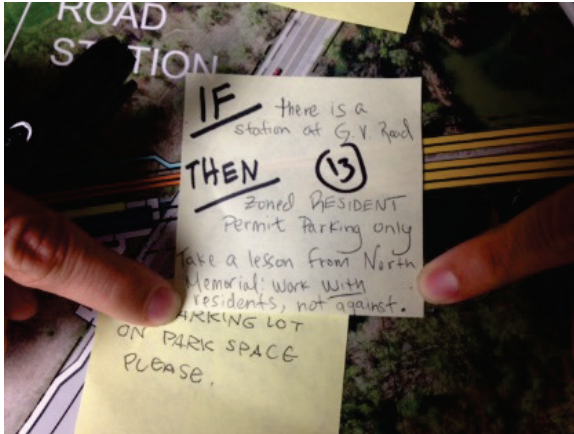 ROAD
STATION
IF there is a
station at G.V. Road
THEN 13
Zoned RESIDENT
Permit Parking only
Take a lesson from North
Memorial: Work With
residents, not against.
PARKING LOT
ON PARK SPACE
PLEASE.